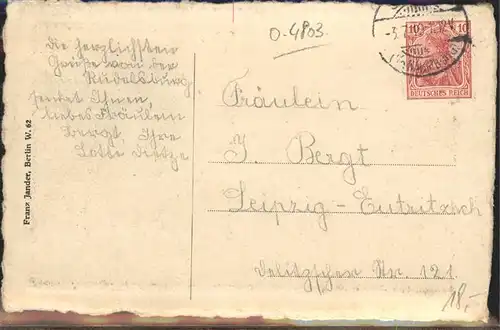 0-4803
Die herzlichsten
Grüße von der
Rudelsburg
sendet Ihnen,
liebes Fräulein
Bergt, Ihre
Lotte Dietze
Fräulein
J. Bergt
Leipzig-Eutritzsch
Delitzscher Str. 121.
18,-
10 10
DEUTSCHES REICH
Franz Jander, Berlin W. 62